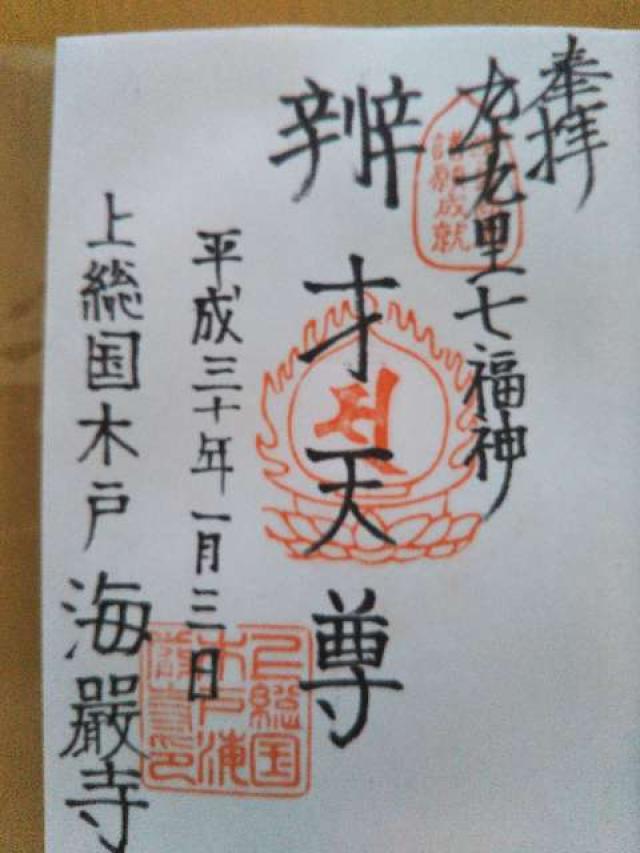 奉拝
九十九里七福神
諸願成就
辨才天尊
平成三十年一月三日
上総国木戸海嚴寺
上総国
木戸海